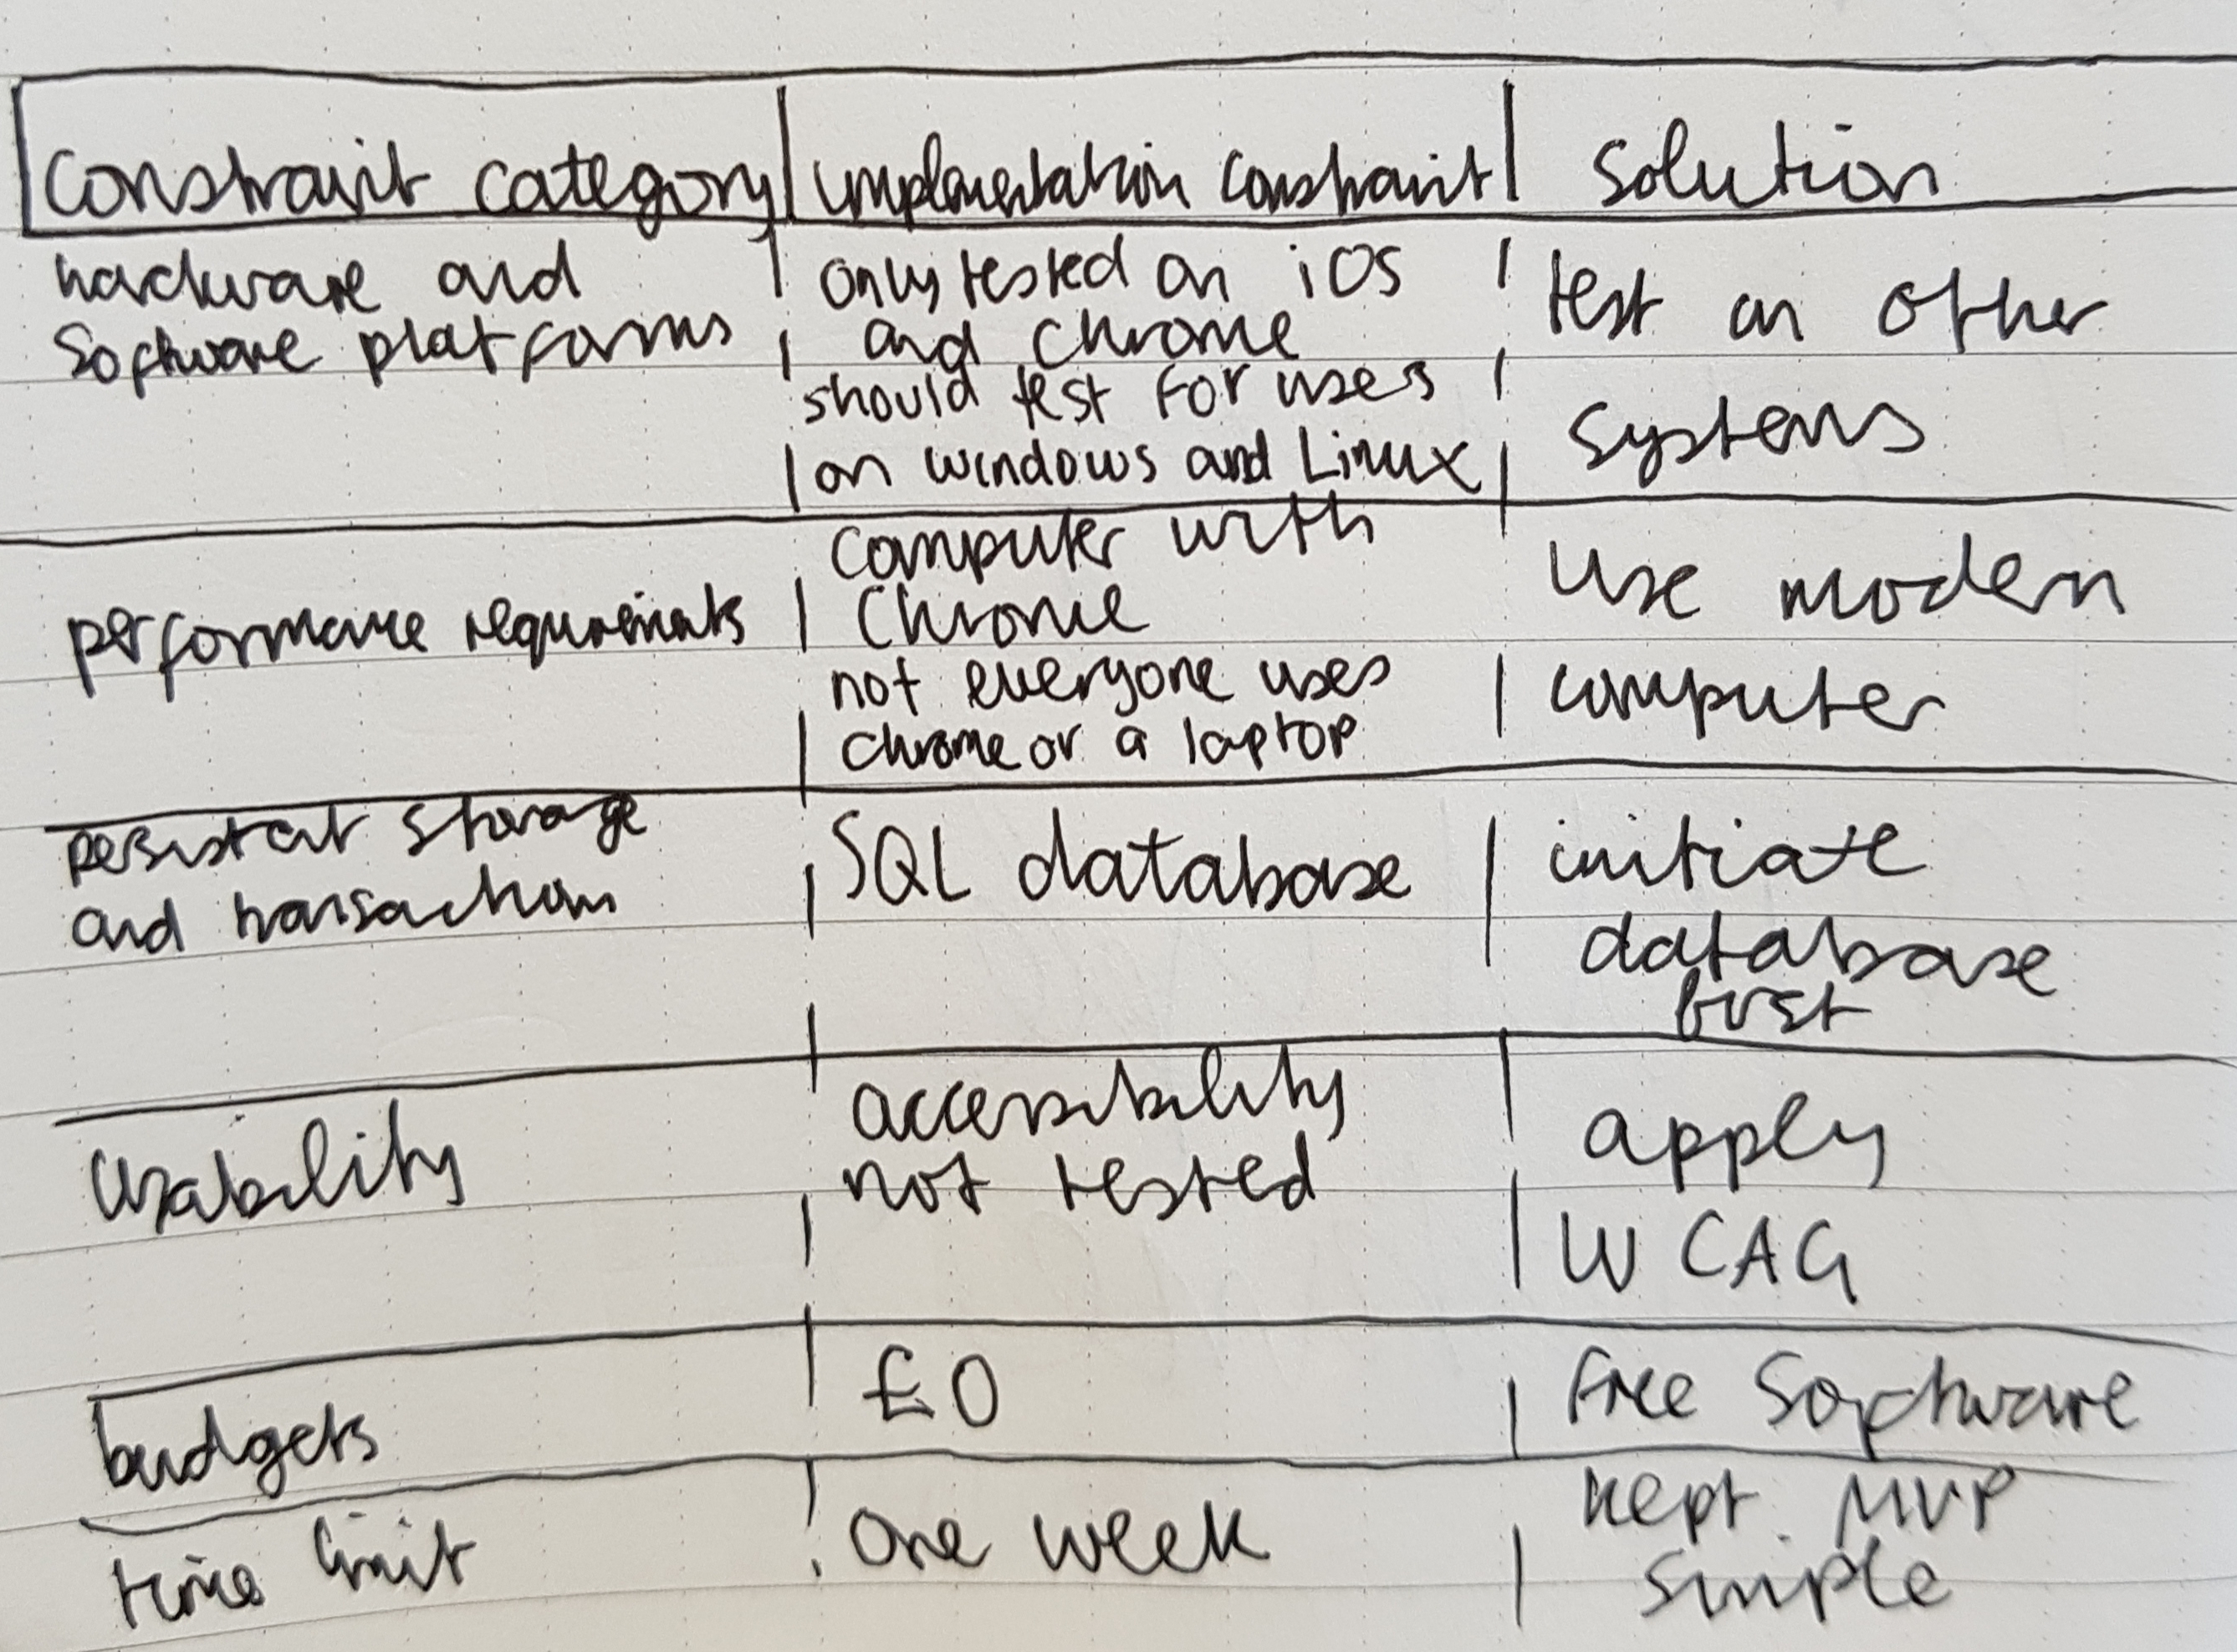 Constraint category | implementation constraint | solution
hardware and
software platforms
only tested on iOS
and Chrome
should test for uses
on windows and Linux
test on other
systems
performance requirements
computer with
Chrome
not everyone uses
chrome or a laptop
use modern
computer
persistent storage
and transactions
SQL database
initiate
database
first
Usability
accessibility
not tested
apply
WCAG
budgets
£0
free software
time limit
one week
kept MVP
simple